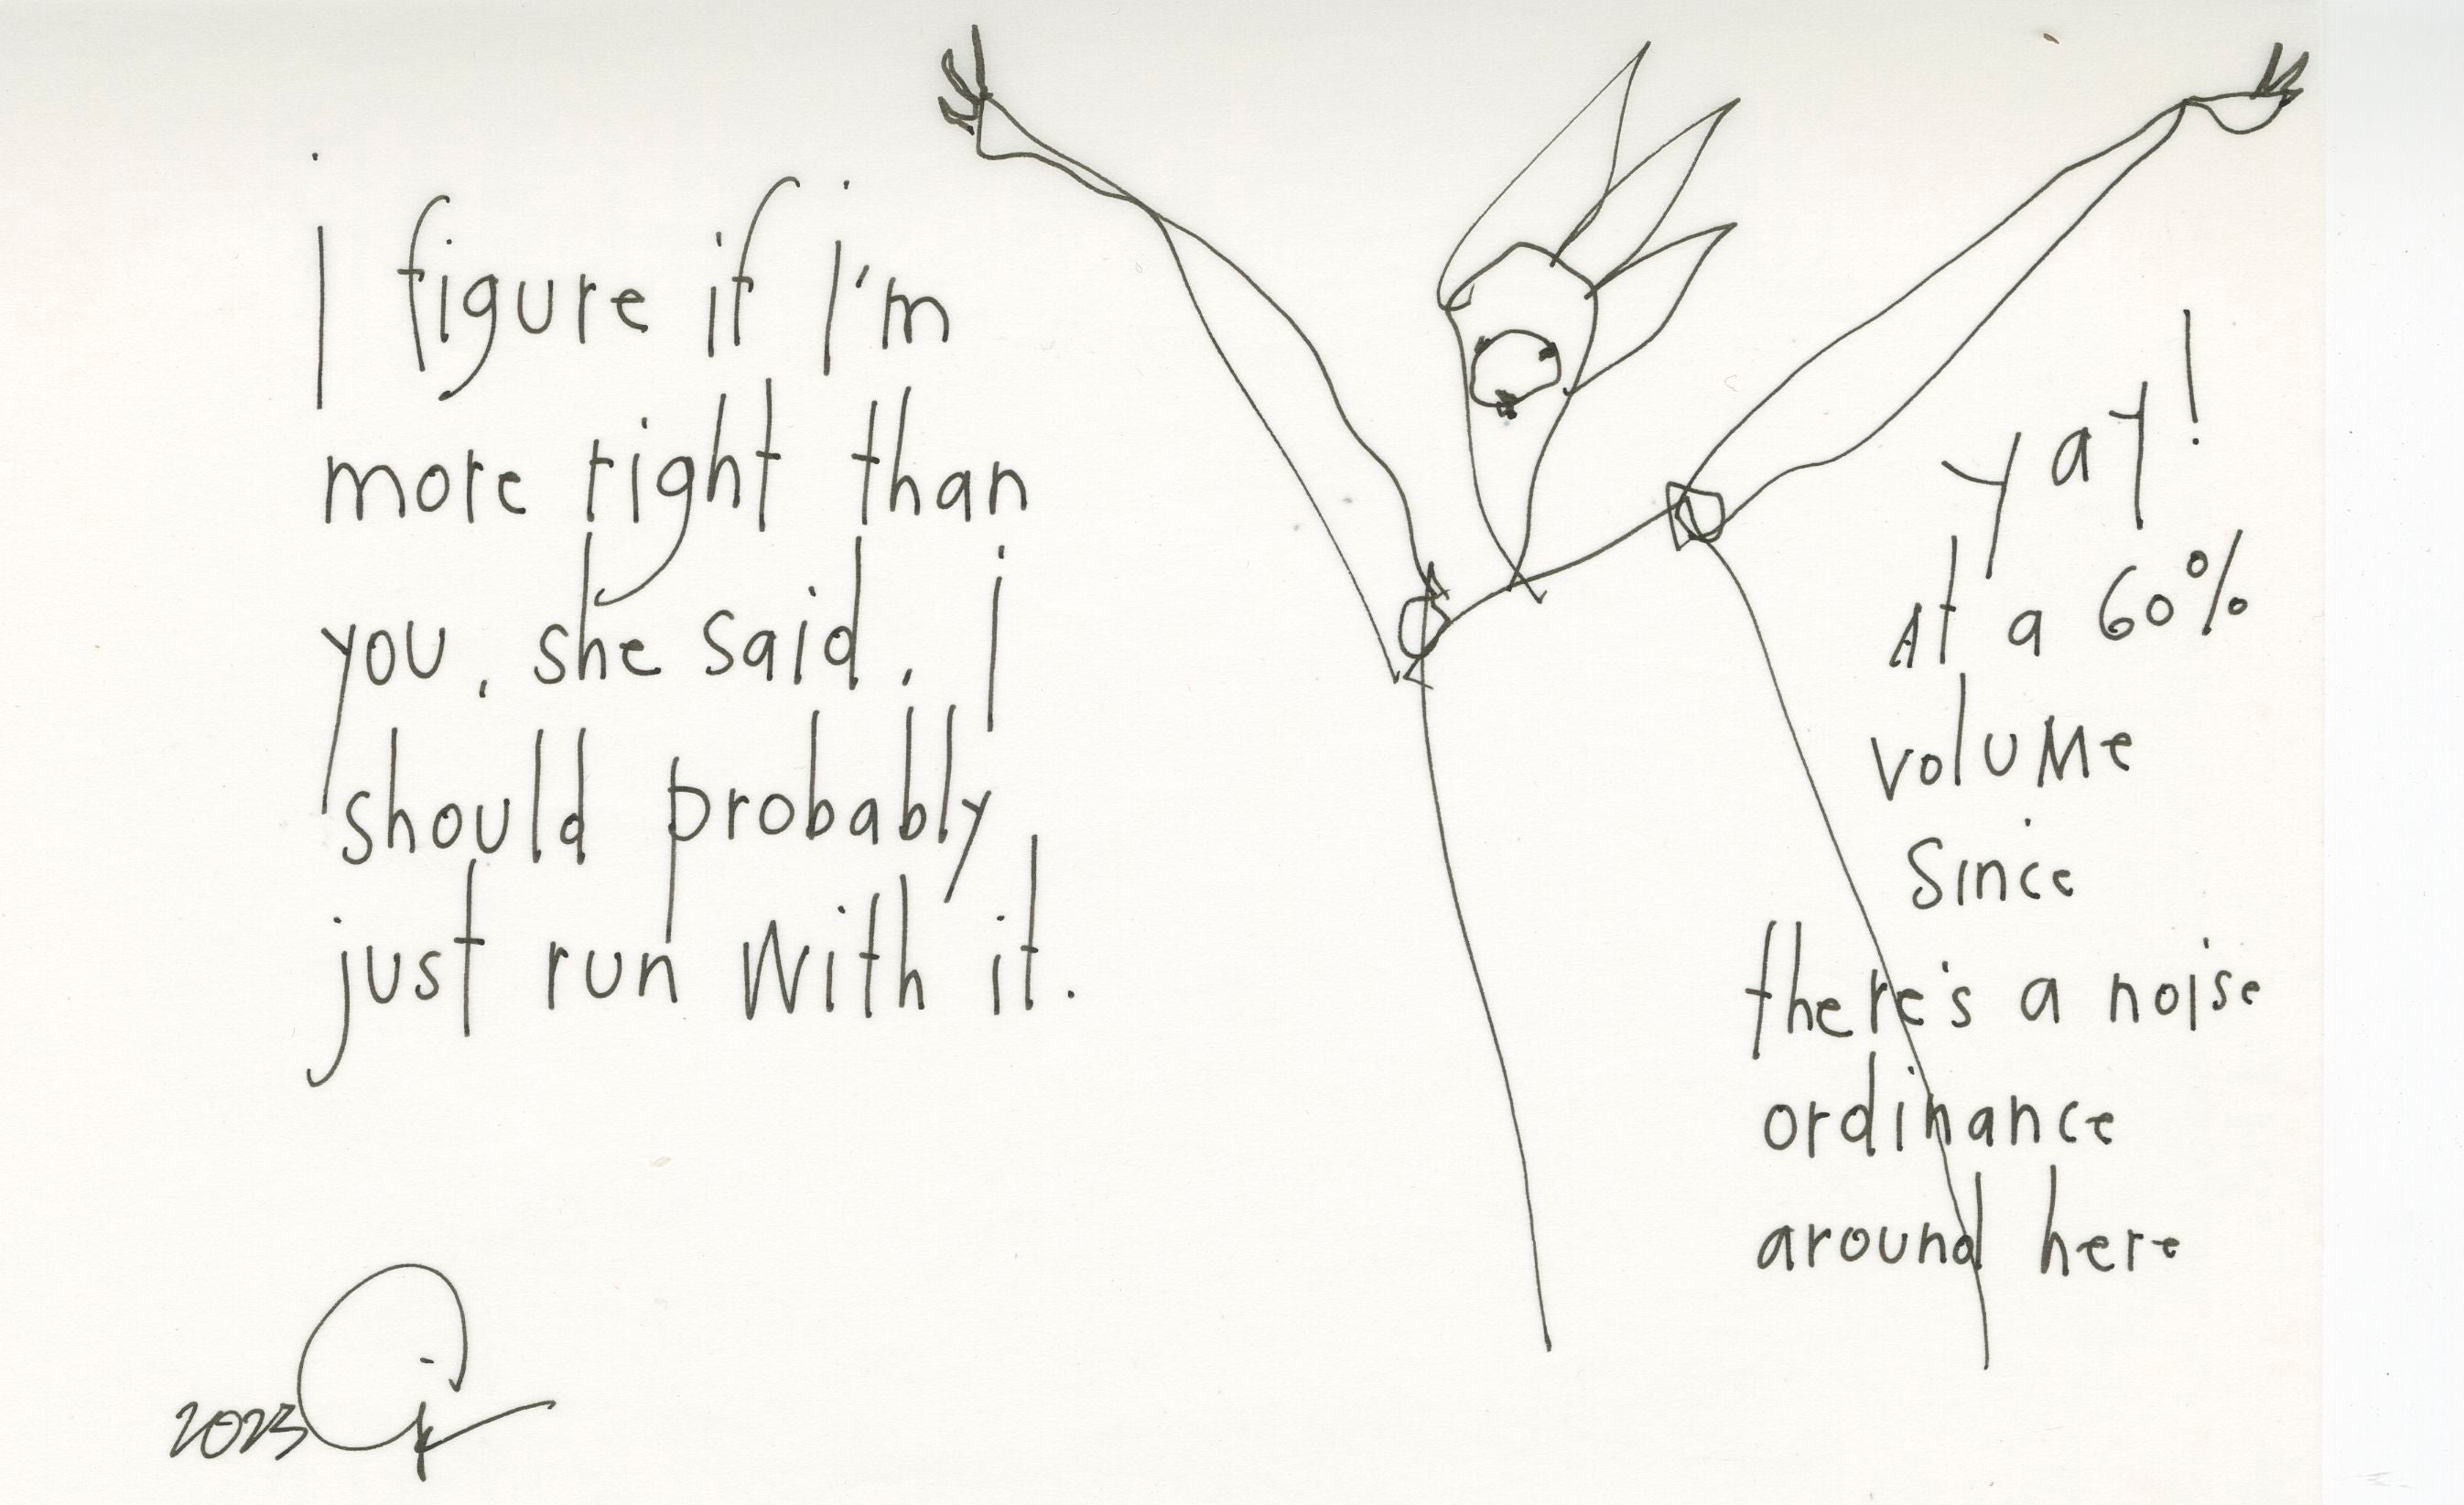 I figure if I'm
more right than
you, she said, I
should probably
just run with it.
yay!
At a 60%
volume
since
there's a noise
ordinance
around here
2023